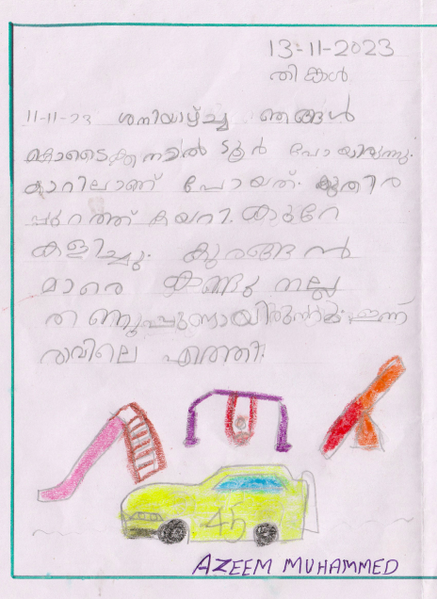 13-11-2023
തിങ്കൾ
11-11-23 ശനിയാഴ്ച്ച ഞങ്ങൾ
കൊടൈക്കനാലിൽ ടൂർ പോയിരുന്നു.
കാറിലാണ് പോയത്. കുതിര
പ്പുറത്ത് കയറി. കുറേ
കളിച്ചു. കുരങ്ങൻ
മാരെ കണ്ടു നല്ല
തണുപ്പുണ്ടായിരുന്നു. ഇന്ന്
രാവിലെ എത്തി.
45
AZEEM MUHAMMED